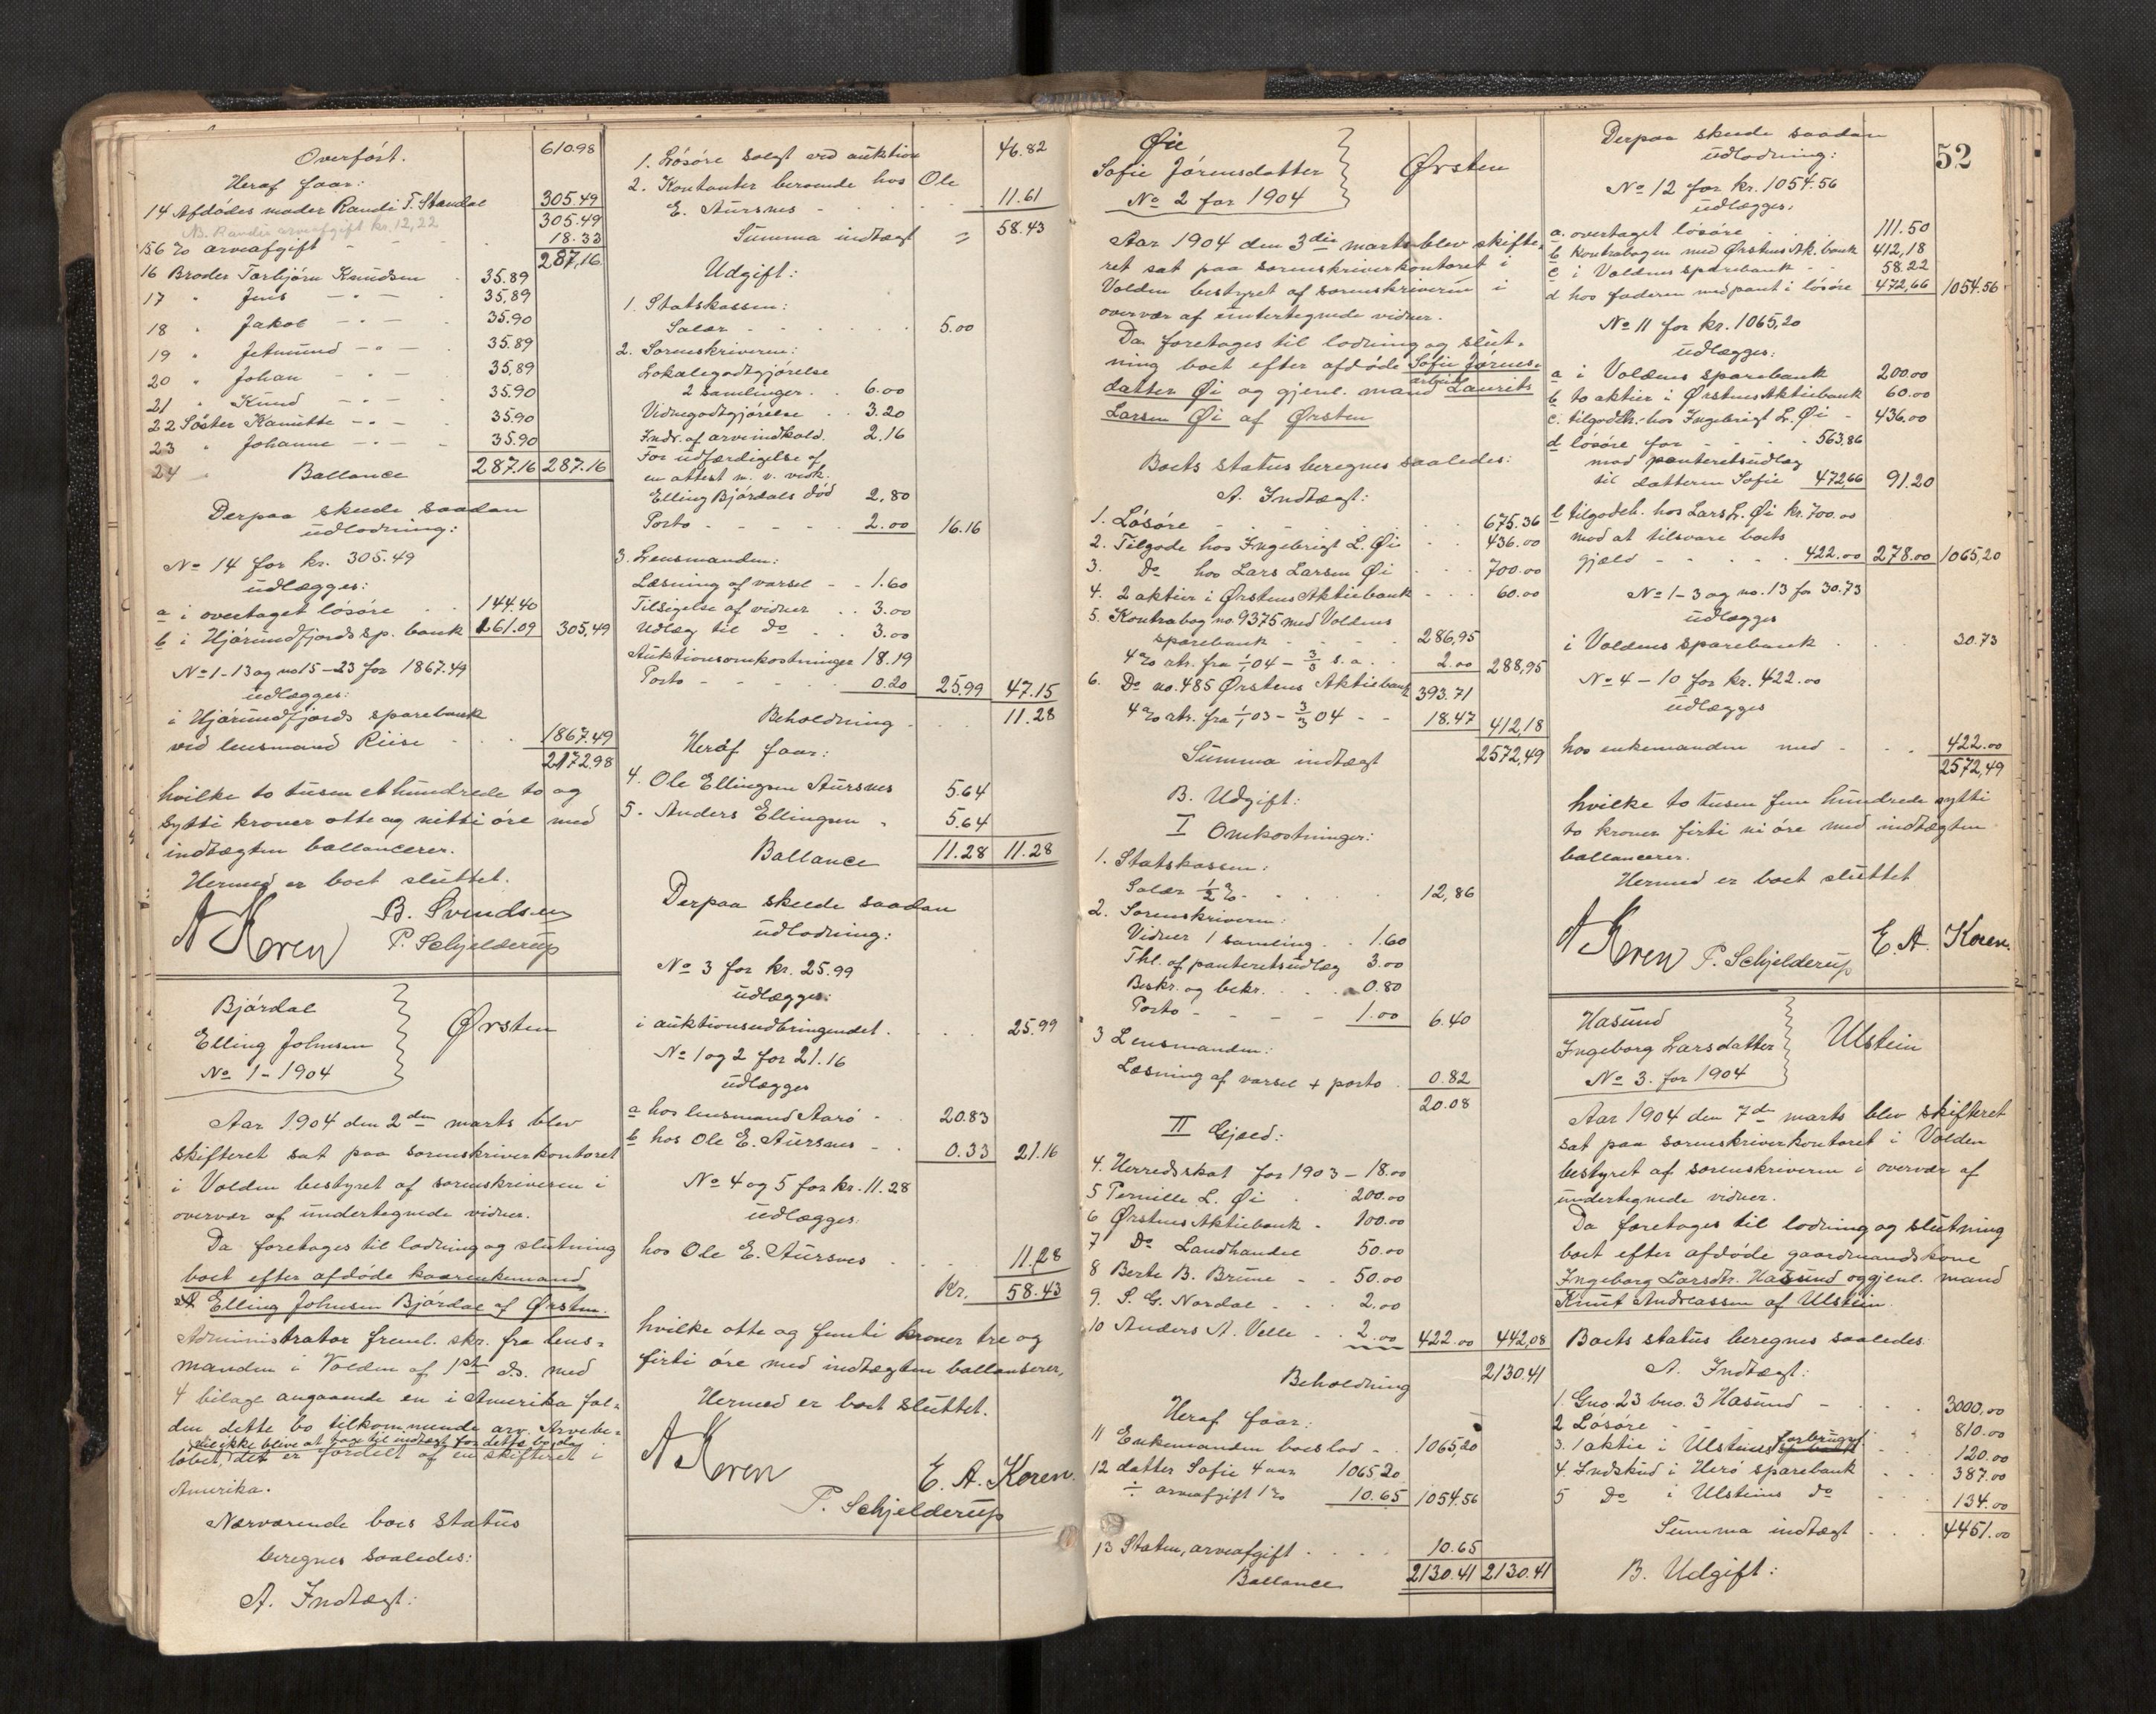 Overført. 610.98
Heraf faar:
14 Afdødes moder Randi T. Standal 305.49
305.49
NB. Randis arveafgift kr. 12,22
15 6 % arveafgift - - - 18.33
287,16
16 Broder Torbjørn Knudsen . 35.89
17 " Jens - " - . 35.89
18 " Jakob - " - 35.90
19 " Jetmund - " - . 35.89
20 " Johan - " - 35,89
21 " Knud - " - 35.90
22 Søster Kanutte - " - 35.90
23 " Johanne - " - . 35.90
24 Ballance 287.16 287.16
Derpaa skeede saadan
udlodning:
No 14 for kr. 305.49
udlægges:
a i overtaget løsøre . . 144.40
b i Hjørundfjords sp. bank 161.09 305,49
No 1-13 og no 15-23 for 1867.49
udlægges:
i Hjørundfjords sparebank
ved lensmand Riise - . . 1867.49
2172,98
hvilke to tusen et hundrede to og
sytti kroner otte og nitti øre med
indtægten ballancerer.
Hermed er boet sluttet.
A Koren B. Svendsen
P. Schjelderup
Bjørdal
Elling Johnsen Ørsten
No 1 - 1904
Aar 1904 den 2den marts blev
skifteret sat paa sorenskriverkontoret
i Volden bestyret af sorenskriveren i
overvær af undertegnede vidner.
Da foretages til lodning og slutning
boet efter afdøde kaarenkemand
Elling Johnsen Bjørdal af Ørsten.
Administrator freml. skr. fra lens-
manden i Volden af 1ste d.s. med
4 bilage angaaende en i Amerika fal-
den dette bo tilkommende arv. Arvebe-
vil ikke blive at tage til indtægt for dette bo, da
løbet, det er fordelt af en skifteret i
Amerika.
Nærværende boes status
beregnes saaledes:
A. Indtægt:
1. Løsøre solgt ved auktion 46.82
2. Kontanter beroende hos Ole
E. Aursnes - - - . . . 11.61
Summa indtægt = 58.43
Udgift:
1. Statskassen:
Salær - - - - - . 5.00
2. Sorenskriveren:
Lokalegodtgjørelse
2 samlinger . . 6.00
Vidnegodtgjørelse . . 3.20
Indr. af arveindkald. 2.16
For udfærdigelse af
en attest m. v. vedk.
Elling Bjørdals død 2,80
Porto - - - - - 2.00 16.16
3. Lensmanden:
Læsning af varsel - - 1.60
Tilsigelse af vidner . . 3.00
Udlæg til do . . 3.00
Auktionsomkostninger 18.19
Porto - - - - - 0.20 25.99 47.15
Beholdning - . . 11.28
Heraf faar:
4. Ole Ellingsen Aursnes 5.64
5. Anders Ellingsen " 5.64
Ballance 11.28 11.28
Derpaa skeede saadan
udlodning:
No 3 for kr. 25.99
udlægges:
i auktionsudbringendet . . . . 25.99
No 1 og 2 for 21.16
udlægges
a hos lensmand Aarø - 20.83
b hos Ole E. Aursnes - . 0.33 21.16
No 4 og 5 for kr. 11.28
udlægges:
hos Ole E. Aursnes . . . 11,28
Kr. 58.43
hvilke otte og femti kroner tre og
firti øre med indtægten ballanserer,
Hermed er boet sluttet.
A Koren E. A. Koren.
P. Schjelderup
Øie
Sofie Jørensdatter Ørsten
No 2 for 1904
Aar 1904 den 3die marts blev skifte-
ret sat paa sorenskriverkontoret i
Volden bestyret af sorenskriveren i
overvær af undertegnede vidner.
Da foretages til lodning og slut-
ning boet efter afdøde Sofie Jørens-
arbeid.
datter Øi og gjenl. mand Laurits
Larsen Øi af Ørsten
Boets status beregnes saaledes:
A. Indtægt:
1. Løsøre - - - - - . . 675.36
2. Tilgode hos Ingebrigt L. Øi - . 436.00
3. Do hos Lars Larsen Øi . . . 700.00
4. 2 aktier i Ørstens Aktiebank - - . 60.00
5. Kontrabog no. 9375 med Voldens
sparebank - - - . . 286,95
4 % rtr. fra 1/1 04 - 3/3 s. a . . 2.00 288,95
6. Do no. 485 Ørstens Aktiebank 393.71
4 % rtr. fra 1/1 03 - 3/3 04 - - 18.47 412,18
Summa indtægt 2572,49
B. Udgift:
I Omkostninger:
1. Statskassen:
Salær 1/2 % - . . . . 12,86
2. Sorenskriveren:
Vidner 1 samling . . 1.60
Thl. af panteretsudlæg 3.00
Beskr. og bekr. . . . 0.80
Porto - - - - 1.00 6.40
3 Lensmanden:
Læsning af varsel + porto . 0.82
20.08
II Gjæld:
4. Herredsskat for 1903 - 18.00
5 Pernille L. Øi . 200.00
6 Ørstens Aktiebank . 100.00
7 Do Landhandel 50.00
8 Berte B. Brune - - 50.00
9. S. G. Nordal - - . 2.00
10 Anders A. Velle . . 2.00 422.00 442,08
Beholdning 2130.41
Heraf faar:
11 Enkemanden boeslod - . 1065,20
12 datter Sofie 4 aar 1065,20
÷ arveafgift 1 % 10.65 1054.56
13 Staten, arveafgift . . . . 10.65
Ballance 2130.41 2130.41
52
Derpaa skeede saadan
udlodning:
No 12 for kr. 1054.56
udlægges:
a. overtaget løsøre . . 111.50
b Kontrabogen med Ørstens Ak. bank 412,18
c i Voldens sparebank - - 58.22
d hos faderen mod pant i løsøre 472,66 1054.56
No 11 for kr. 1065,20
udlægges:
a i Voldens sparebank 200.00
b to aktier i Ørstens Aktiebank 60.00
c. tilgodeh. hos Ingebrigt L. Øi - 436.00
d løsøre for - - - . 563,86
mod panteretsudlæg
til datteren Sofie 472,66 91.20
e tilgodeh. hos Lars L. Øi kr. 700.00
mod at tilsvare boets
gjæld - - - - . 422.00 278.00 1065,20
No 1-3 og no. 13 for 30.73
udlægges
i Voldens sparebank . . 30.73
No 4 - 10 for kr. 422.00
udlægges
hos enkemanden med - . . 422.00
2572,49
hvilke to tusen fem hundrede sytti
to kroner firti ni øre med indtægten
ballancerer.
Hermed er boet sluttet
A Koren P. Schjelderup E. A. Koren.
Hasund
Ingeborg Larsdatter Ulstein
No 3. for 1904
Aar 1904 den 7de marts blev skifteret
sat paa sorenskriverkontoret i Volden
bestyret af sorenskriveren i overvær af
undertegnede vidner.
Da foretages til lodning og slutning
boet efter afdøde gaardmandskone
Ingeborg Larsdtr. Hasund og gjenl. mand
Knut Andreassen af Ulstein.
Boets status beregnes saaledes:
A. Indtægt:
1. Gno. 23 bno. 3 Hasund - . . . 3000,00
2 Løsøre - - - 810.00
forbrugsf.
3. 1 aktie i Ulsteins - . 120.00
4. Indskud i Herø sparebank . . 387.00
5 Do i Ulsteins do - . 134.00
Summa indtægt . . . 4451.00
B. Udgift: